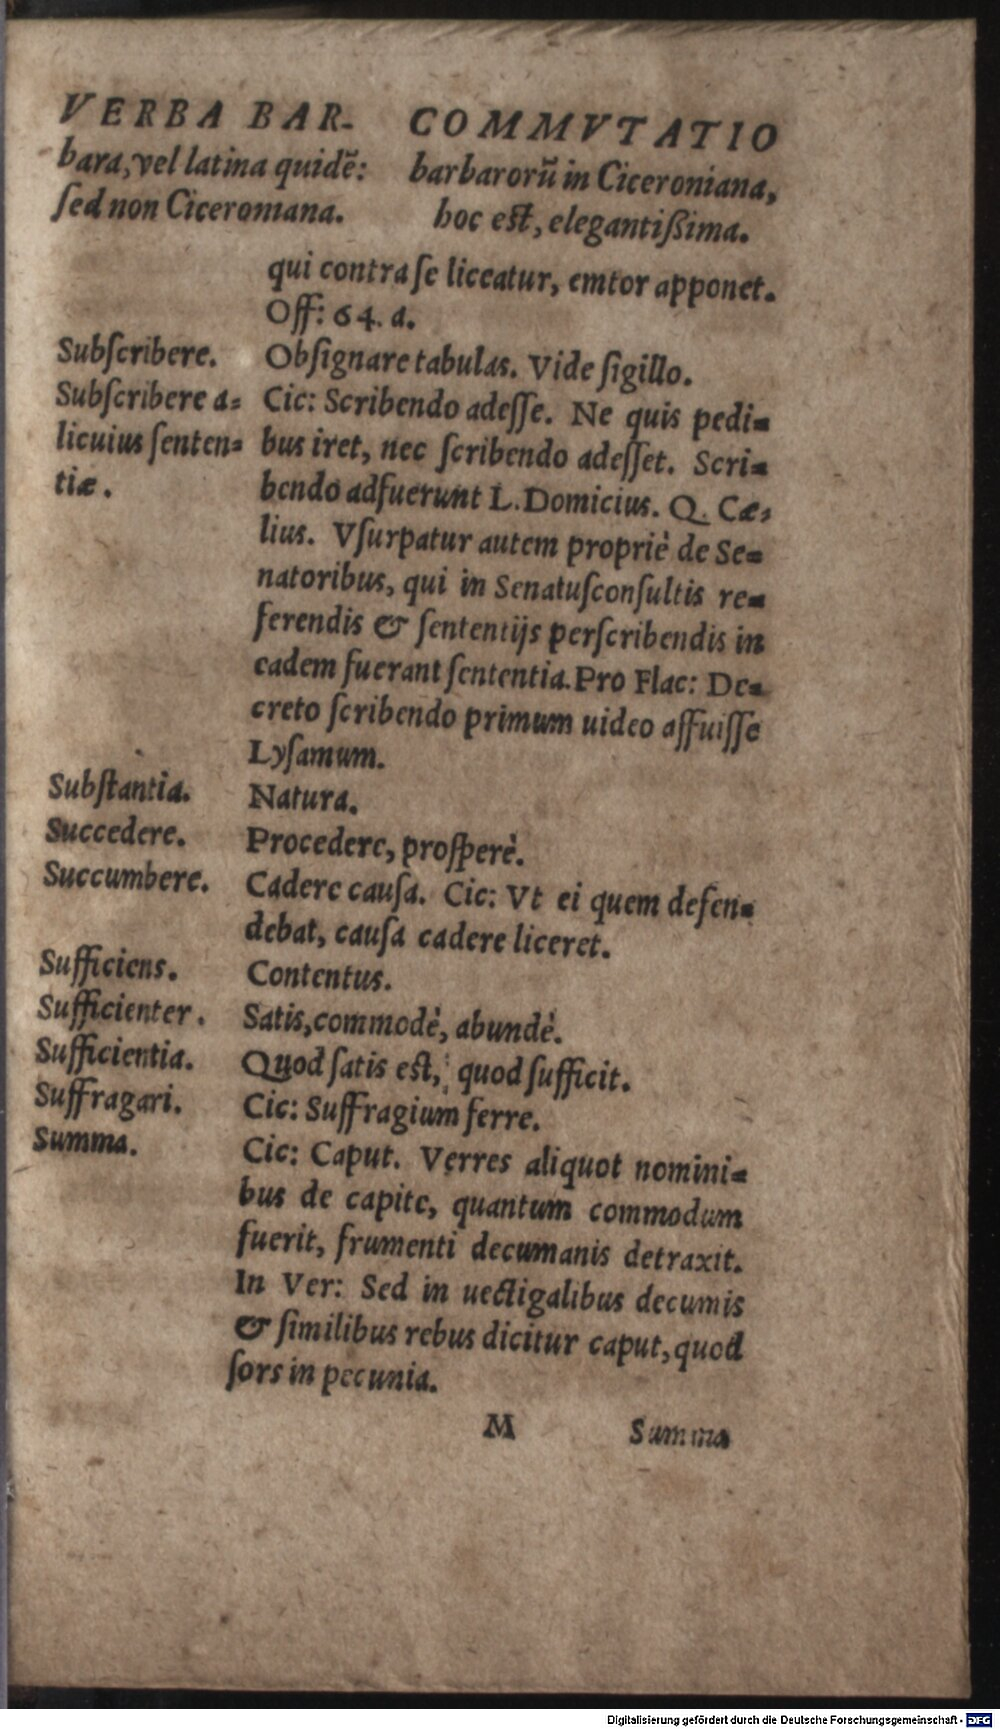 VERBA BAR- COMMVTATIO
bara, vel latina quidē: barbarorū in Ciceroniana,
ſed non Ciceroniana. hoc eſt, elegantiſſima.
qui contra ſe liceatur, emtor apponet.
Off: 64. d.
Subſcribere. Obſignare tabulas. Vide ſigillo.
Subſcribere a= Cic: Scribendo adeſſe. Ne quis pedi=
licuius ſenten= bus iret, nec ſcribendo adeſſet. Scri=
tiæ. bendo adfuerunt L. Domicius. Q. Cæ=
lius. Vſurpatur autem propriè de Se=
natoribus, qui in Senatuſconſultis re=
ferendis & ſententijs perſcribendis in
eadem fuerant ſententia. Pro Flac: De=
creto ſcribendo primum uideo affuiſſe
Lyſamum.
Subſtantia. Natura.
Succedere. Procedere, proſperè.
Succumbere. Cadere cauſa. Cic: Vt ei quem defen=
debat, cauſa cadere liceret.
Sufficiens. Contentus.
Sufficienter. Satis, commodè, abundè.
Sufficientia. Quod ſatis eſt, quod ſufficit.
Suffragari. Cic: Suffragium ferre.
Summa. Cic: Caput. Verres aliquot nomini=
bus de capite, quantum commodum
fuerit, frumenti decumanis detraxit.
In Ver: Sed in uectigalibus decumis
& ſimilibus rebus dicitur caput, quod
ſors in pecunia.
M Summa
Digitalisierung gefördert durch die Deutsche Forschungsgemeinschaft - DFG